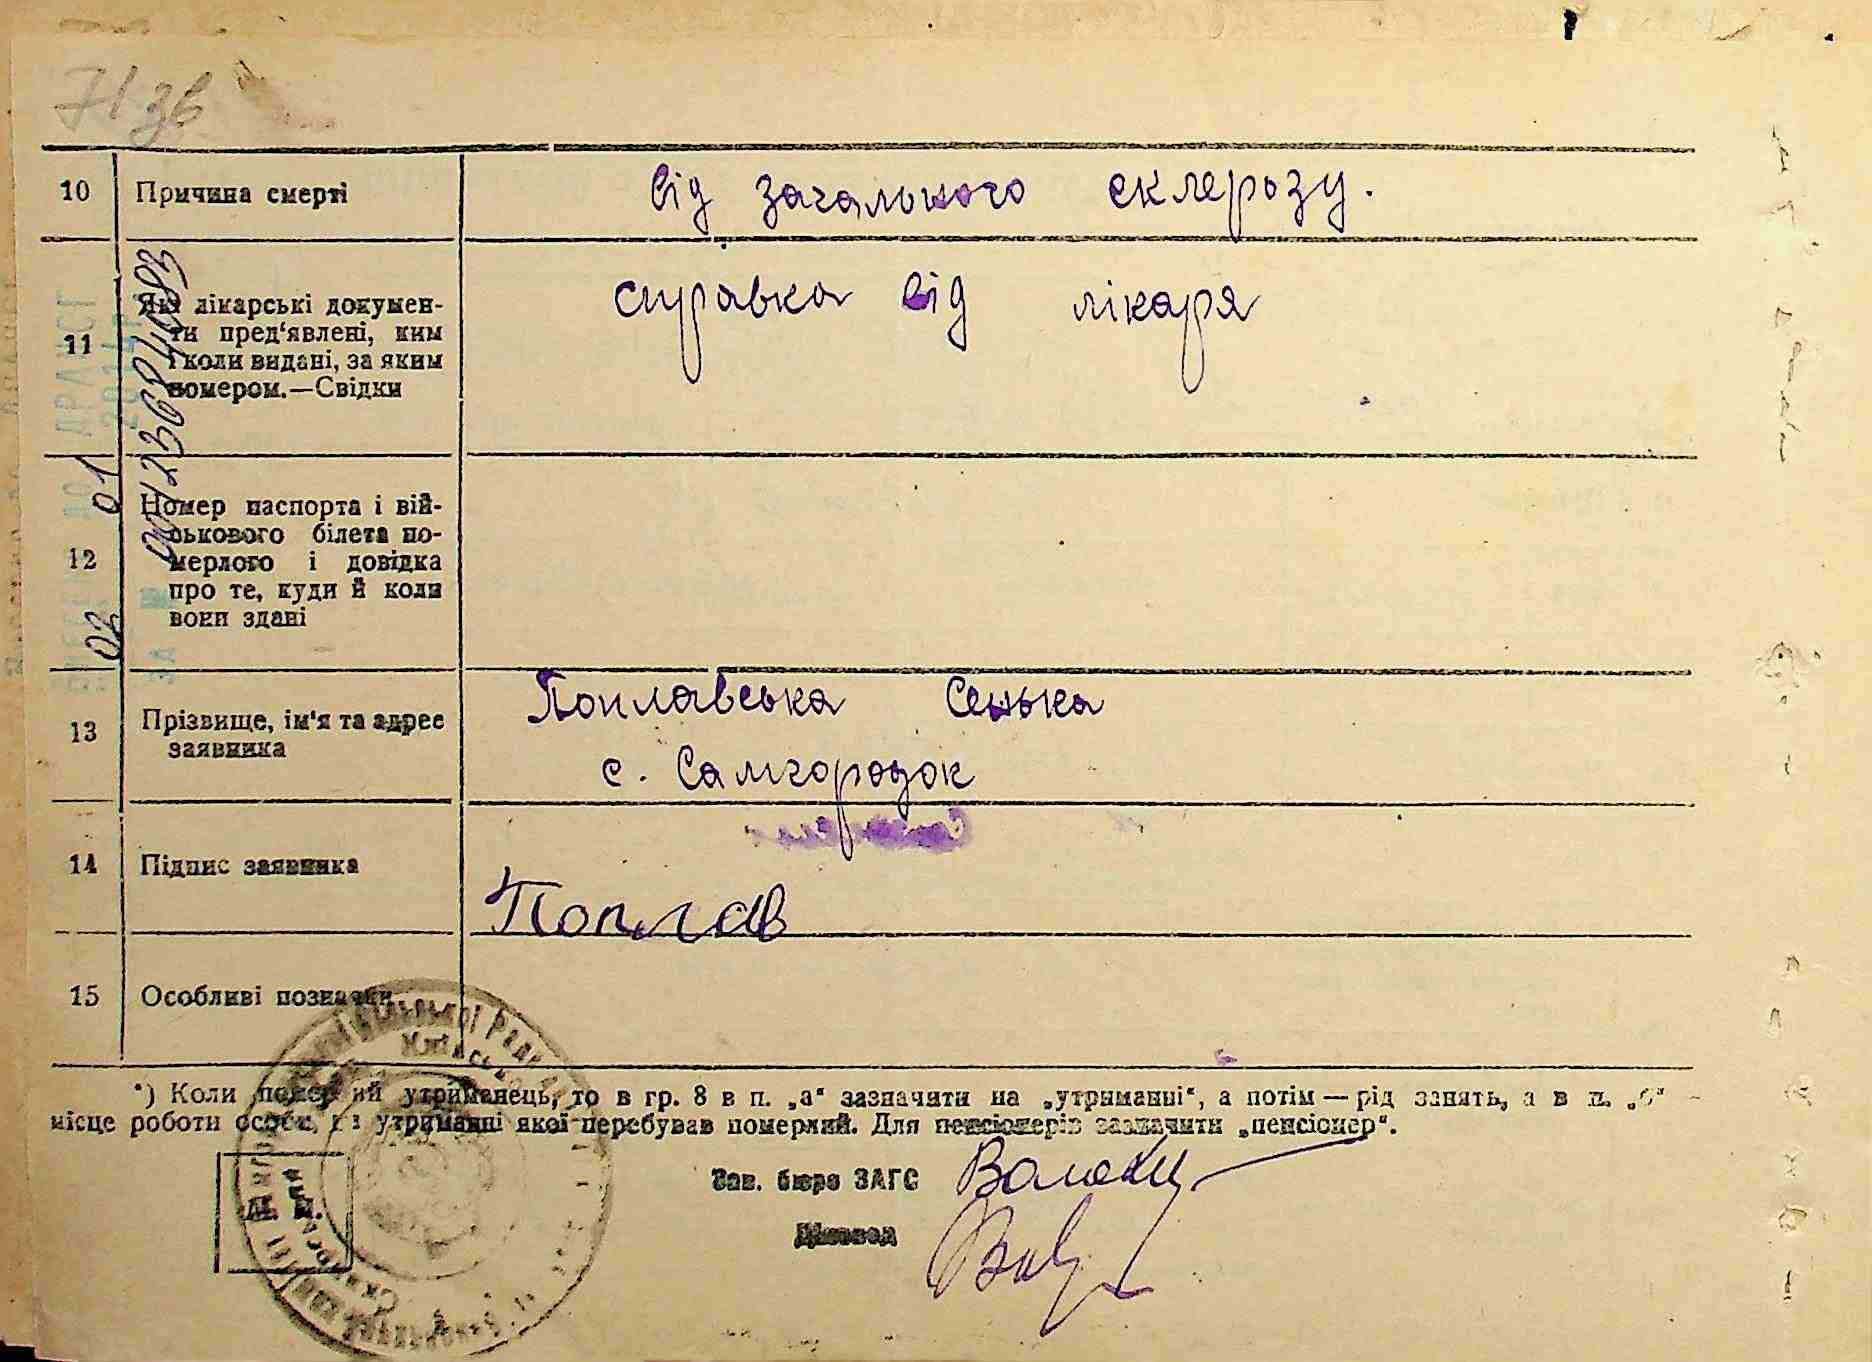 71 зв
10 Причина смерті від загального склерозу.
11 Які лікарські докумен-
ти пред'явлені, ким
і коли видані, за яким
номером.—Свідки
справка від лікаря
00123684083
01
02
12 Номер паспорта і вій-
ськового білета по-
мерлого і довідка
про те, куди й коли
вони здані
13 Прізвище, ім'я та адрес
заявника
Поплавська Сенька
с. Самгородок
14 Підпис заявника
Поплав
15 Особливі позначки
*) Коли померлий утриманець, то в гр. 8 в п. „а“ зазначити на „утриманні“, а потім — рід занять, а в п. „б“ -
місце роботи особи, на утриманні якої перебував померлий. Для пенсіонерів зазначити „пенсіонер“.
Зав. бюро ЗАГС
Діловод
М. П.